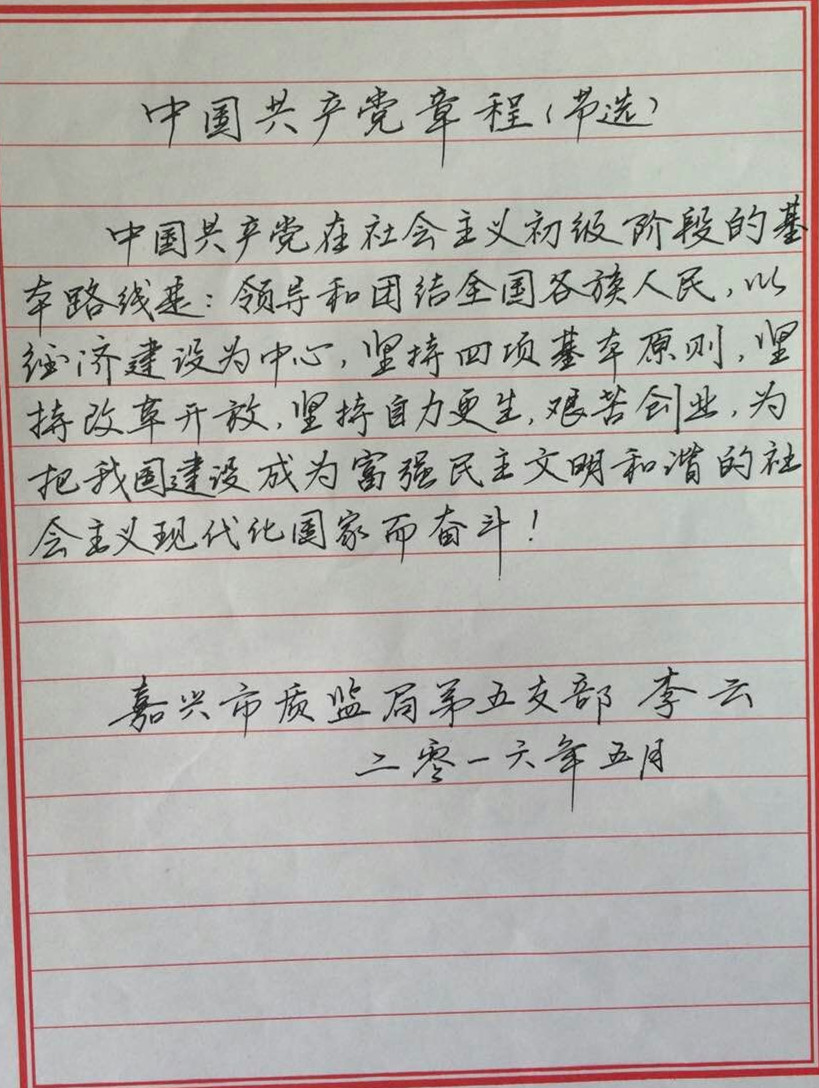 中国共产党章程(节选)
中国共产党在社会主义初级阶段的基
本路线是:领导和团结全国各族人民,以
经济建设为中心,坚持四项基本原则,坚
持改革开放,坚持自力更生,艰苦创业,为
把我国建设成为富强民主文明和谐的社
会主义现代化国家而奋斗!
嘉兴市质监局第五支部 李云
二零一六年五月